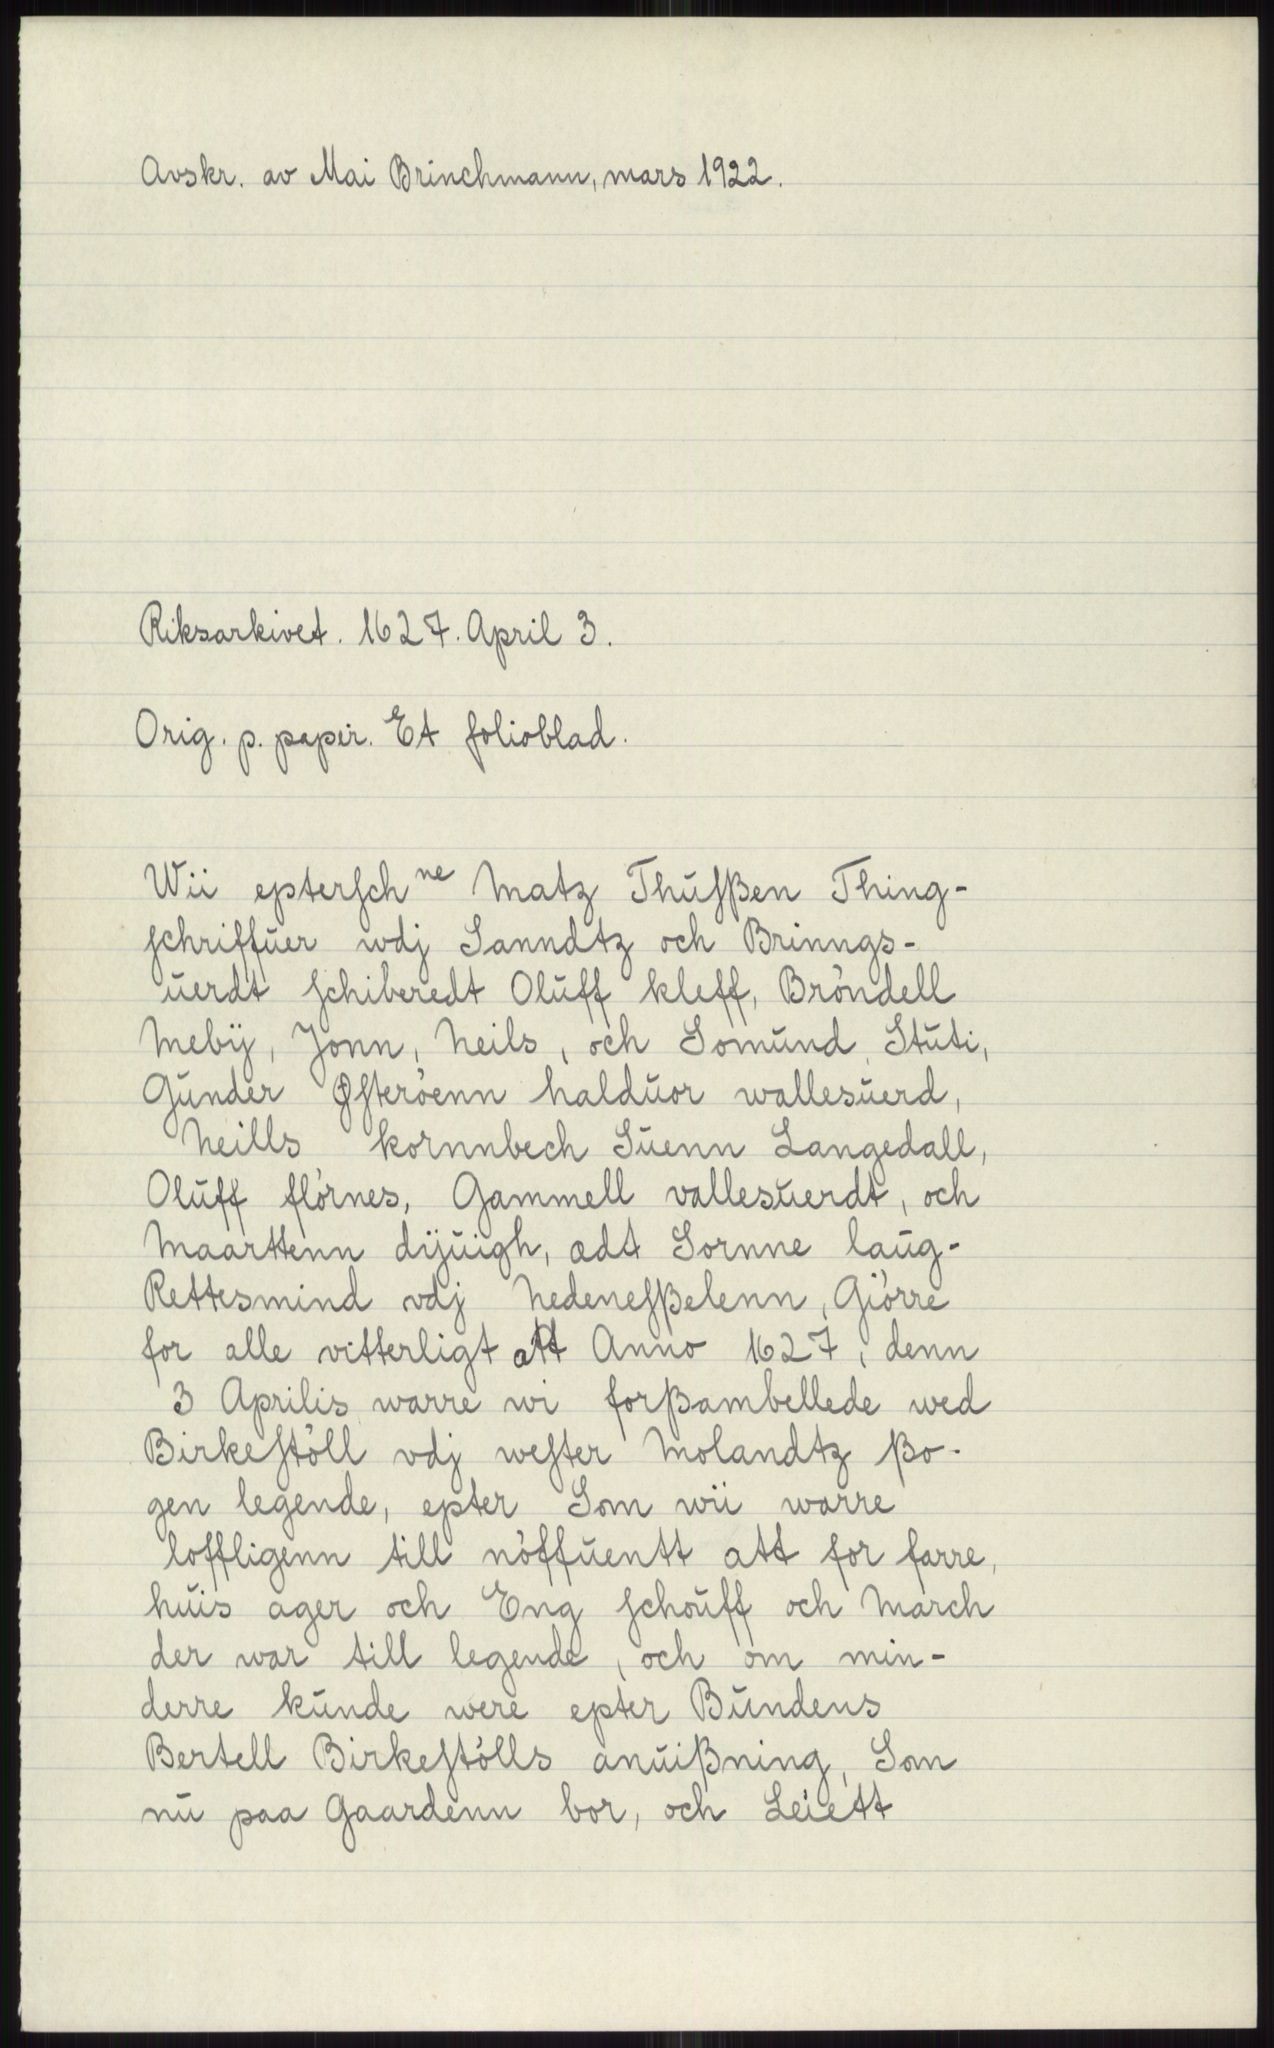 Avskr. av Mai Brinchmann, mars 1922.
Riksarkivet. 1627. April 3.
Orig. p. papir. Et folioblad.
Wii epterſch ne Matz Thuſßen Thing-
ſchriffuer wdj Sanndtz och Brinngs-
uerdt ſchiberedt Oluff kleff, Bröndell
Mebÿ, Jonn, Neils, och Somund Stuti,
Gunder Øſteröenn halduor wallesuerd,
Neills kornnbech Suenn Langedall,
Oluff flörnes, Gammell vallesuerdt, och
Maarttenn dÿuigh, ædt Sornne laug-
Rettesmind vdj Nedeneſßelenn, Giörre
for alle vitterligt att Anno 1627, denn
3 Aprilis warre wi forßambellede wed
Birkeſtöll vdj weſter Molandtz ßo-
gen legende, epter Som wii warre
loffligenn till nöffuentt att for farre,
huis ager och Eng ſchouff och March
der war till legende, och om min-
derre kunde were epter Bundens
Bertell Birkeſtölls anuißning, Som
nu paa Gaardenn bor, och Leiett